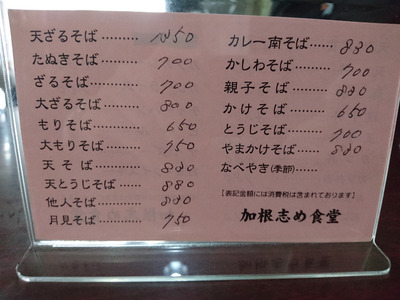 天ざるそば………1250
たぬきそば………700
ざるそば………700
大ざるそば………800
もりそば………650
大もりそば………750
天そば………830
天とうじそば……880
他人そば………830
月見そば………750
カレー南そば……830
かしわそば………700
親子そば………830
かけそば………650
とうじそば………700
やまかけそば……830
なべやき(季節)……
【表記金額には消費税は含まれております】
加根志め食堂